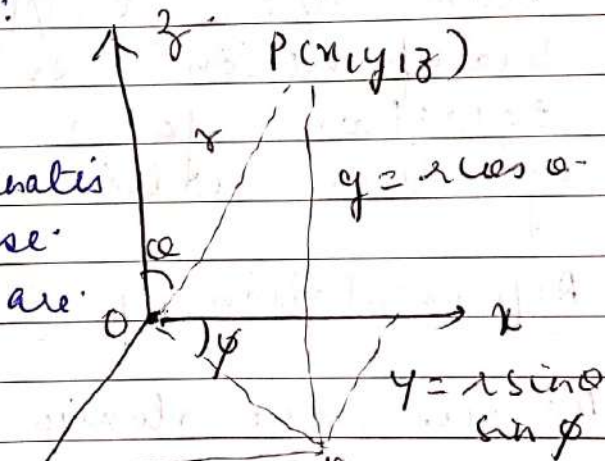 z
P(x,y,z)
r
z = r cos θ
nates
se.
θ
are
O
x
φ
y = r sinθ
sin φ